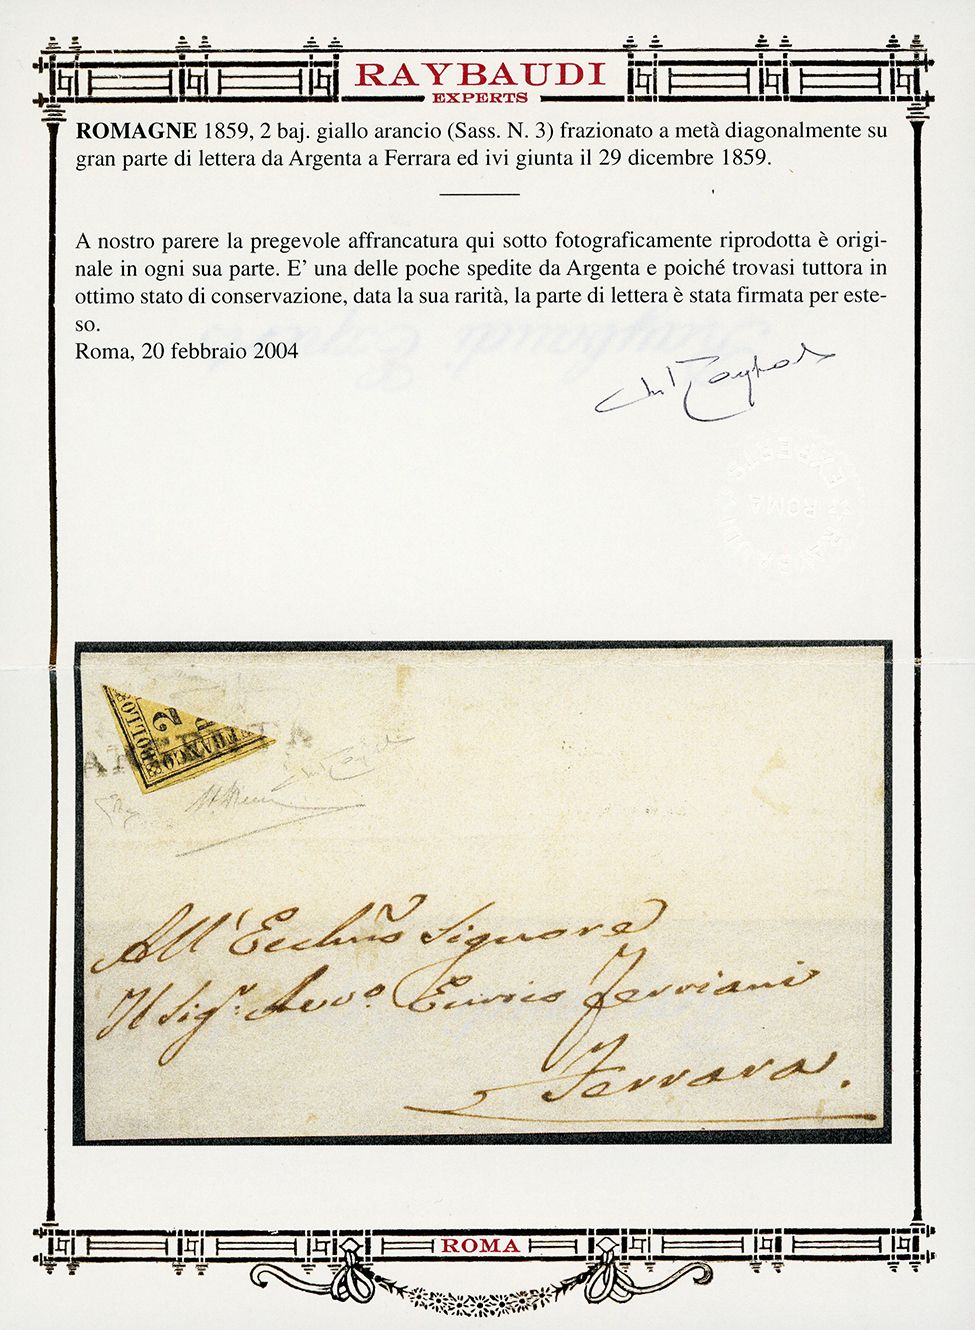 RAYBAUDI
EXPERTS
ROMAGNE 1859, 2 baj. giallo arancio (Sass. N. 3) frazionato a metà diagonalmente su
gran parte di lettera da Argenta a Ferrara ed ivi giunta il 29 dicembre 1859.
A nostro parere la pregevole affrancatura qui sotto fotograficamente riprodotta è origi-
nale in ogni sua parte. E’ una delle poche spedite da Argenta e poiché trovasi tuttora in
ottimo stato di conservazione, data la sua rarità, la parte di lettera è stata firmata per este-
so.
Roma, 20 febbraio 2004
EXPERTS
ROMA
RAYBAUDI
BOLLO
2
FRANCO
All' Signore
Il Sig.r Avv.o Ferriani
Ferrara.
ROMA